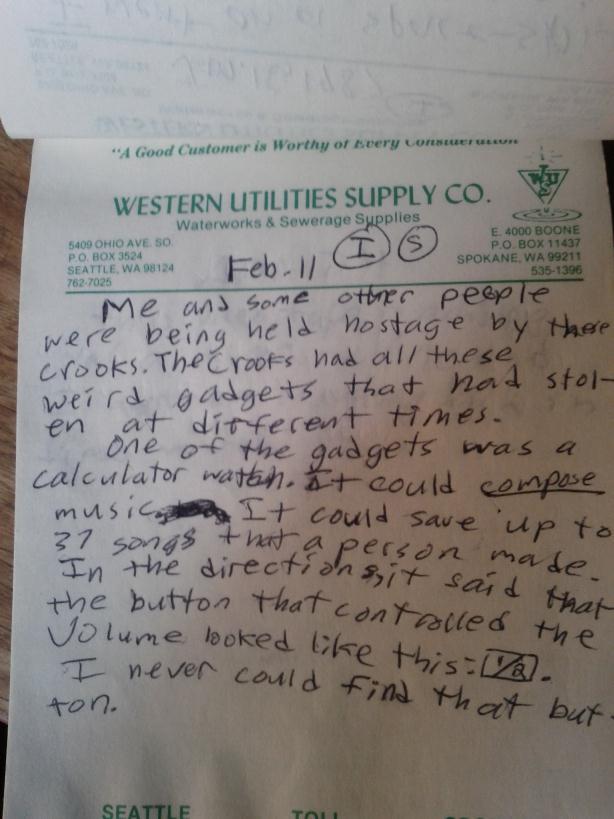 "A Good Customer is Worthy of Every Consideration"
WESTERN UTILITIES SUPPLY CO.
Waterworks & Sewerage Supplies
5409 OHIO AVE. SO.
P.O. BOX 3524
SEATTLE, WA 98124
762-7025
WUS
E. 4000 BOONE
P.O. BOX 11437
SPOKANE, WA 99211
535-1396
Feb. 11 I S
Me and some other people
were being held hostage by these
crooks. The crooks had all these
weird gadgets that had stol-
en at different times.
One of the gadgets was a
calculator watch. It could compose
music It could save up to
37 songs that a person made.
In the directions, it said that
the button that controlled the
volume looked like this: 1/2.
I never could find that but-
ton.
SEATTLE TOLL